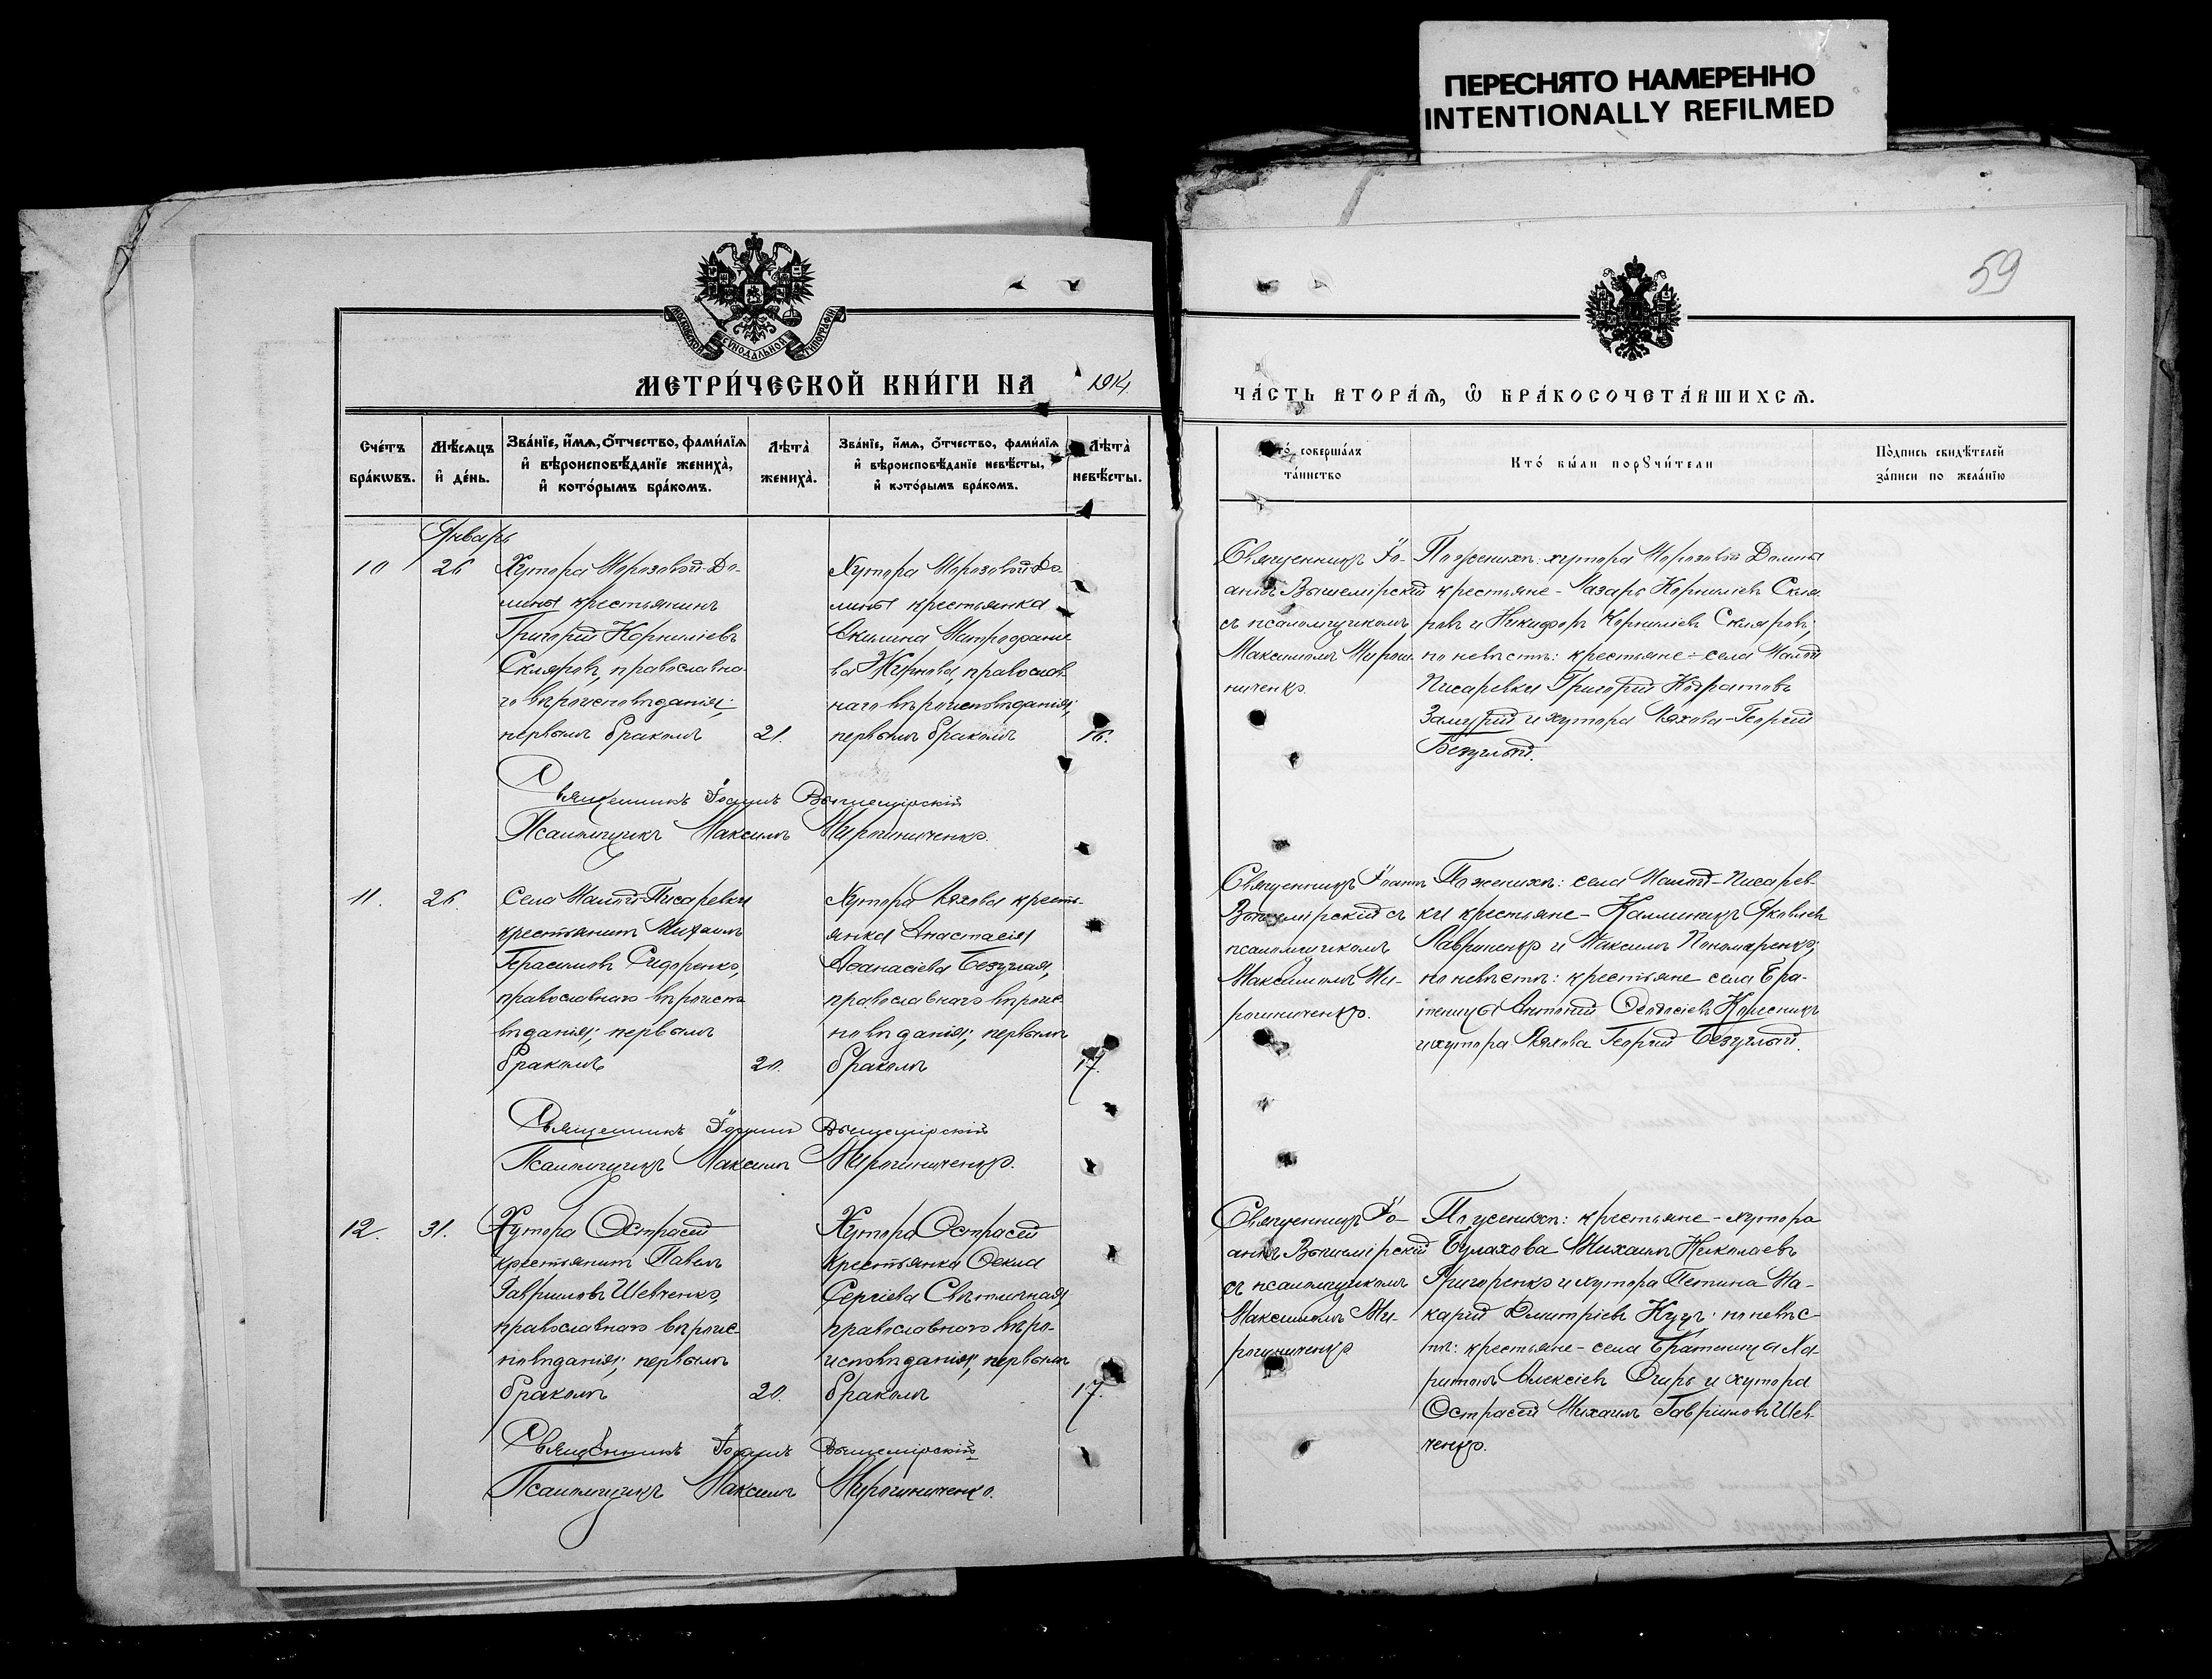 ПЕРЕСНЯТО НАМЕРЕННО
INTENTIONALLY REFILMED
59
МОСКОВСКОЙ СУНОДАЛЬНОЙ ТИПОГРАФІИ
МЕТРИ́ЧЕСКОЙ КНИ́ГИ НА 1914.
ЧА́СТЬ ВТОРА́Ѧ, Ѽ БРА́КОСОЧЕТА́ВШИХСѦ.
Сче́тъ бра́кѡвъ.
Мѣ́сѧцъ и҆ де́нь.
Зва́нїе, и҆́мѧ, ѻ҆́тчество, фами́лїѧ
и҆ вѣроисповѣ́данїе жениха̀,
и҆ кото́рымъ бра́комъ.
Лѣта̀ жениха̀.
Зва́нїе, и҆́мѧ, ѻ҆́тчество, фами́лїѧ
и҆ вѣроисповѣ́данїе невѣ́сты,
и҆ кото́рымъ бра́комъ.
Лѣта̀ невѣ́сты.
совершáлъ
та́инство
Кто́ бы́ли порꙋчи́тели
По́дпись свидѣ́телей
за́писи по жела́нїю
Январь
10
26
Хутора Морозовой-До-
лины крестьянинъ
Григорій Корниліевъ
Скляровъ, православна-
го вѣроисповѣданія;
первымъ бракомъ
21.
Хутора Морозовой До
лины крестьянка
Акилина Митрофано
ва Жирнова, православ
наго вѣроисповѣданія;
первымъ бракомъ
16.
Священникъ Іо-
аннъ Вышемірскій
съ псаломщикомъ
Максимомъ Мирош
ниченко.
По женихѣ: хутора Морозовой Долины
крестьяне - Лазарь Корниліевъ Скля
ровъ и Никифоръ Корниліевъ Скляровъ;
по невѣстѣ: крестьяне - села Малой
Писаревки Григорій Кодратовъ
Замурій и хутора Ляхова - Георгій
Безуглый.
Священникъ Іоаннъ Вышемірскій
Псаломщикъ Максимъ Мирошниченко.
11.
26.
Села Малой-Писаревки
крестьянинъ Михаилъ
Герасимовъ Сидоренко,
православнаго вѣроиспо
вѣданія; первымъ
бракомъ
20.
Хутора Ляхова кресть-
янка Анастасія
Аѳанасіева Безуглая,
православнаго вѣроис
повѣданія; первымъ
бракомъ
17.
Священникъ Іоаннъ
Вышемірскій съ
псаломщикомъ
Максимомъ Ми-
рошниченко.
По женихѣ: села Малой-Писарев-
ки крестьяне - Каллиникъ Яковлевъ
Лавриненко и Максимъ Пономаренко;
по невѣстѣ: крестьяне села Бра-
теницы Антоній Ѳеодосіевъ Колесникъ
и хутора Ляхова Георгій Безуглый.
Священникъ Іоаннъ Вышемірскій
Псаломщикъ Максимъ Мирошниченко.
12.
31.
Хутора Острасей
крестьянинъ Павелъ
Гавриловъ Шевченко,
православнаго вѣроис-
повѣданія; первымъ
бракомъ
20.
Хутора Острасей
крестьянка Ѳекла
Сергіева Свѣтличная,
православнаго вѣро-
исповѣданія; первымъ
бракомъ
17.
Священникъ Іо-
аннъ Вышемірскій
съ псаломщикомъ
Максимомъ Ми-
рошниченко
По женихѣ: крестьяне - хутора
Булахова Михаилъ Николаевъ
Григоренко и хутора Петина Ма-
карій Дмитріевъ Куцъ; по невѣс-
тѣ: крестьяне - села Братеницы Ха-
ритонъ Алексіевъ Огирь и хутора
Острасей Михаилъ Гавриловъ Шев-
ченко.
Священникъ Іоаннъ Вышемірскій
Псаломщикъ Максимъ Мирошниченко.